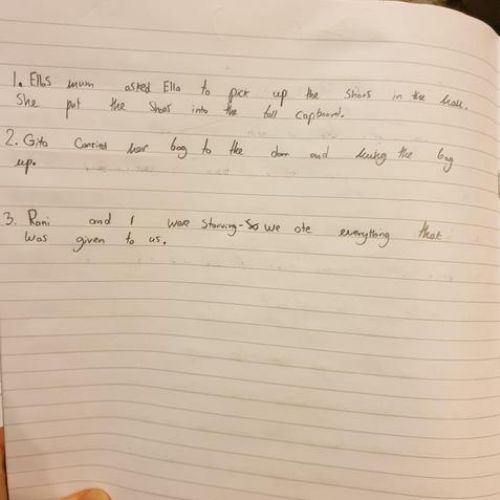 1. Ellas mum asked Ella to pick up the shoes in the hall.
She put the shoes into the tall capboard.
2. Gita Carried her bag to the door and hung the bag
up.
3. Rani and I were starving - So we ate everything that
was given to us.